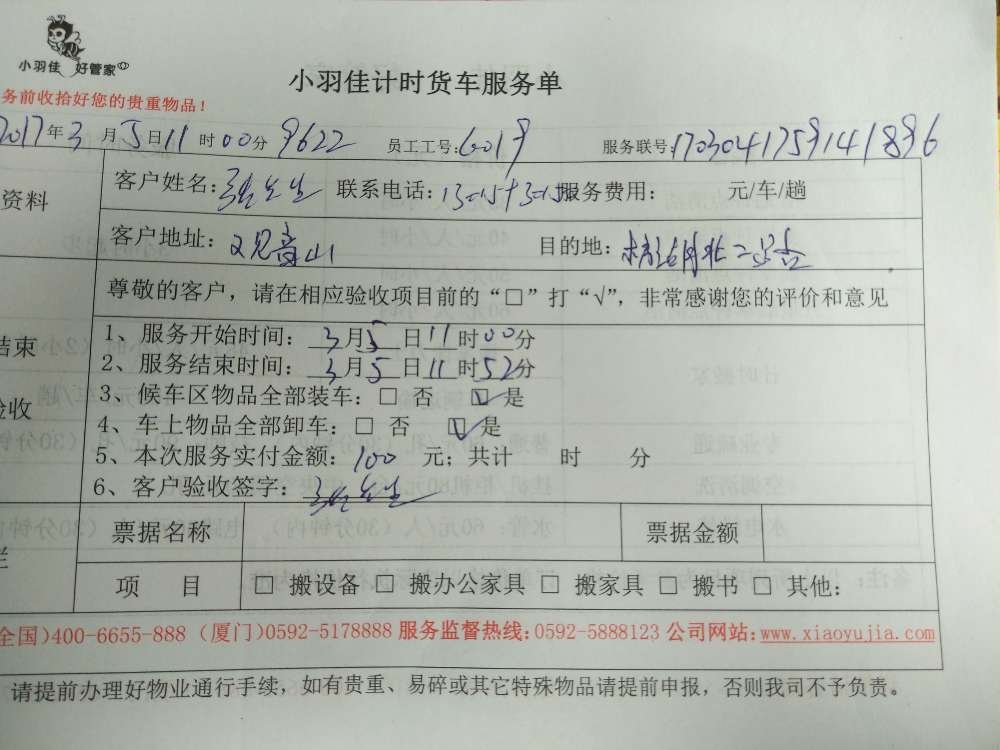 小羽佳 好管家
小羽佳计时货车服务单
务前收拾好您的贵重物品！
2017年3月5日11时00分 9622 员工工号：6019 服务联号：1703041759141896
资料
客户姓名：张先生 联系电话： 服务费用： 元/车/趟
客户地址：观音山 目的地：
尊敬的客户，请在相应验收项目前的“□”打“√”，非常感谢您的评价和意见
结束
验收
1、服务开始时间：3月5日11时00分
2、服务结束时间：3月5日11时52分
3、候车区物品全部装车：□ 否 ☑ 是
4、车上物品全部卸车：□ 否 ☑ 是
5、本次服务实付金额：100 元；共计 时 分
6、客户验收签字：张先生
票据名称 票据金额
栏
项 目 □ 搬设备 □ 搬办公家具 □ 搬家具 □ 搬书 □ 其他：
全国)400-6655-888 (厦门)0592-5178888 服务监督热线：0592-5888123 公司网站：www.xiaoyujia.com
请提前办理好物业通行手续，如有贵重、易碎或其它特殊物品请提前申报，否则我司不予负责。